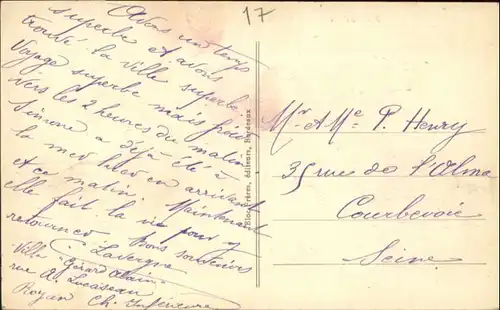 17
Avons un temps
superbe et avons
trouvé la ville superbe.
Voyage superbe mais froid
vers les 2 heures du matin
Simone a déjà été à
la mer hier en arrivant
et ce matin. Maintenant
elle fait la vie pour y
retourner Bons souvenirs
C. Lavergne
Villa "Gérard Alain"
rue A. Lucazeau
Royan Ch. Inférieure
Bloc Frères, éditeurs, Bordeaux
Mr et Me P. Henry
35 rue de l'Alma
Courbevoie
Seine